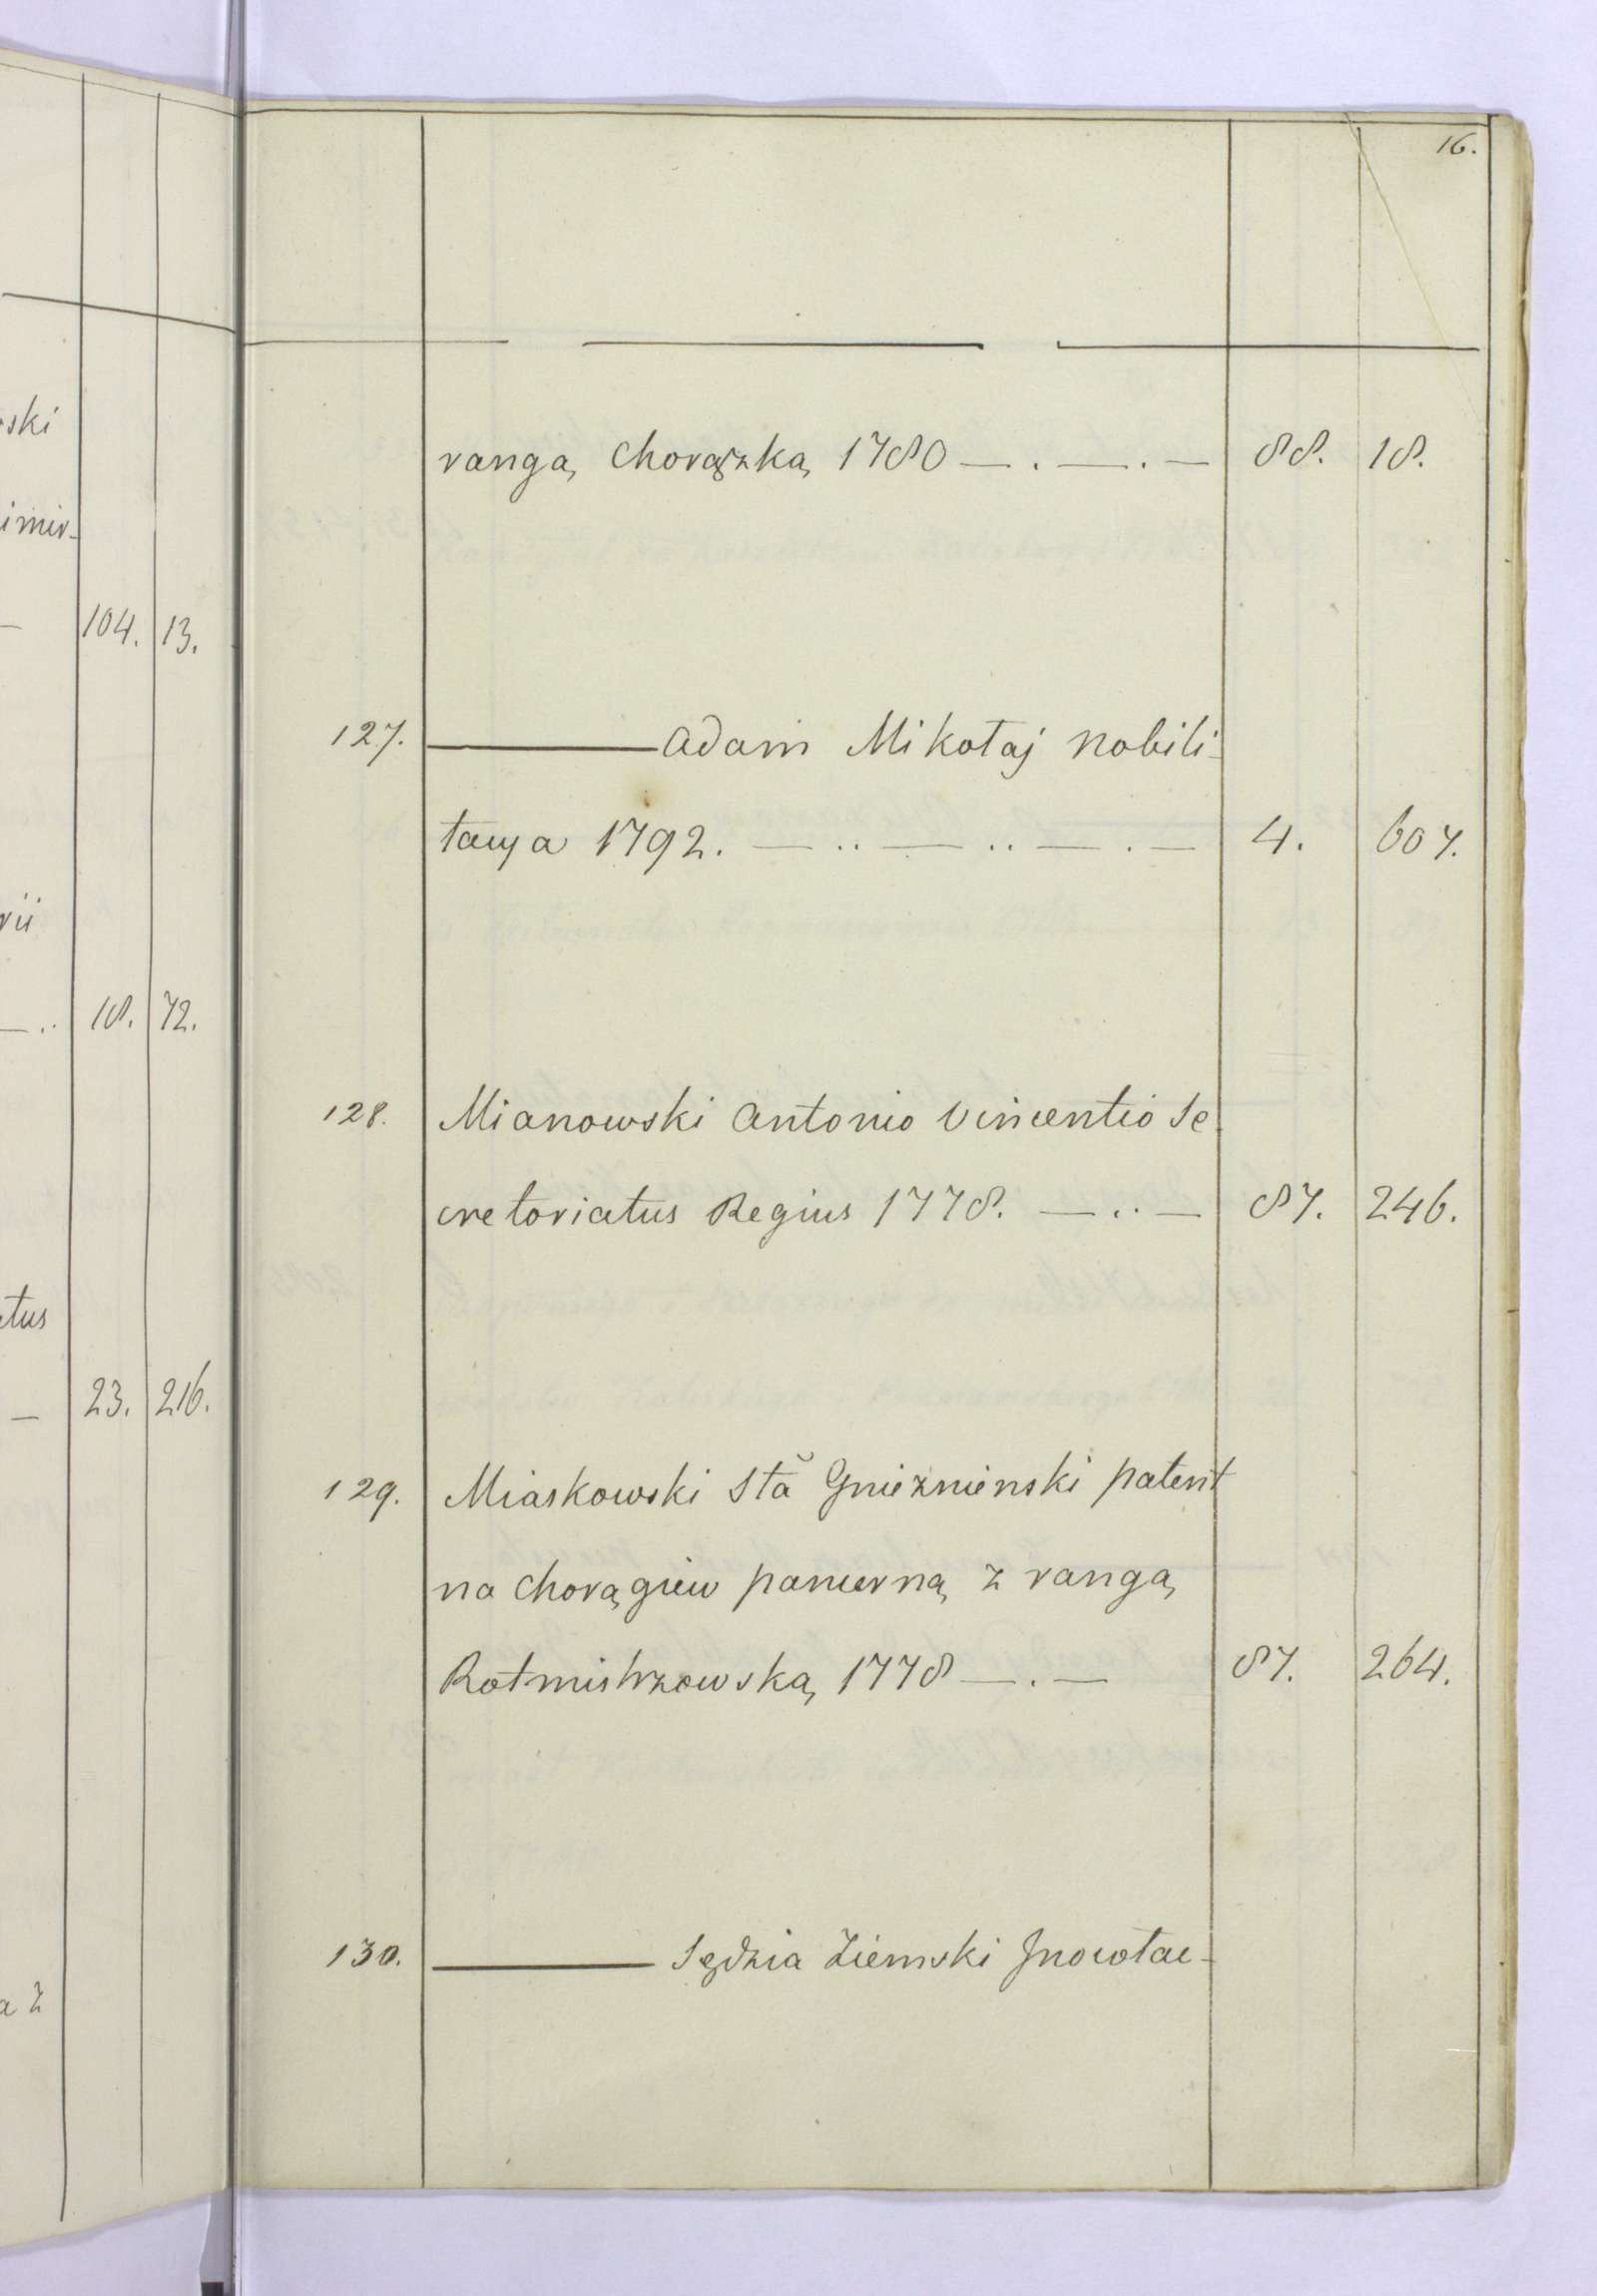 16.
ski
imir-
— 104. 13.
rii
—.. 18. 72.
tus
— 23. 216.
a z
rangą Chorążką 1780 —.—.— 88. 18.
127. ——— Adam Mikołaj nobili-
tacya 1792. —..—..—.— 4. 607.
128. Mianowski Antonio Vincentio Se-
cretoriatus Regius 1778. —..— 87. 246.
129. Miaskowski Sta Gnieznienski patent
na Chorągiew pancerną z rangą
Rotmistrzowską 1778 —.— 87. 264.
130. ——— Sędzia Ziemski Jnowłac-